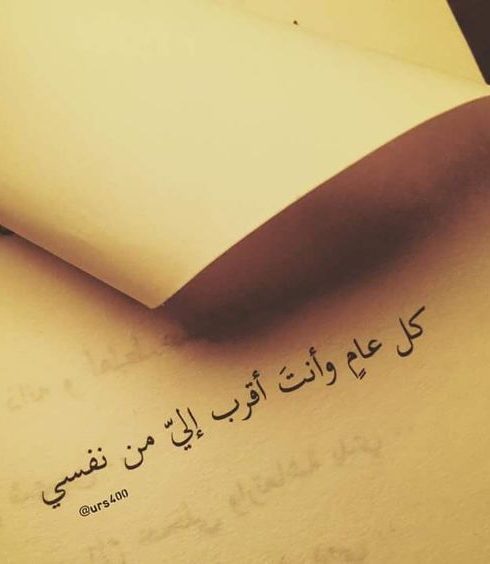 كل عامٍ وأنتَ أقرب إليّ من نفسي
@urs400